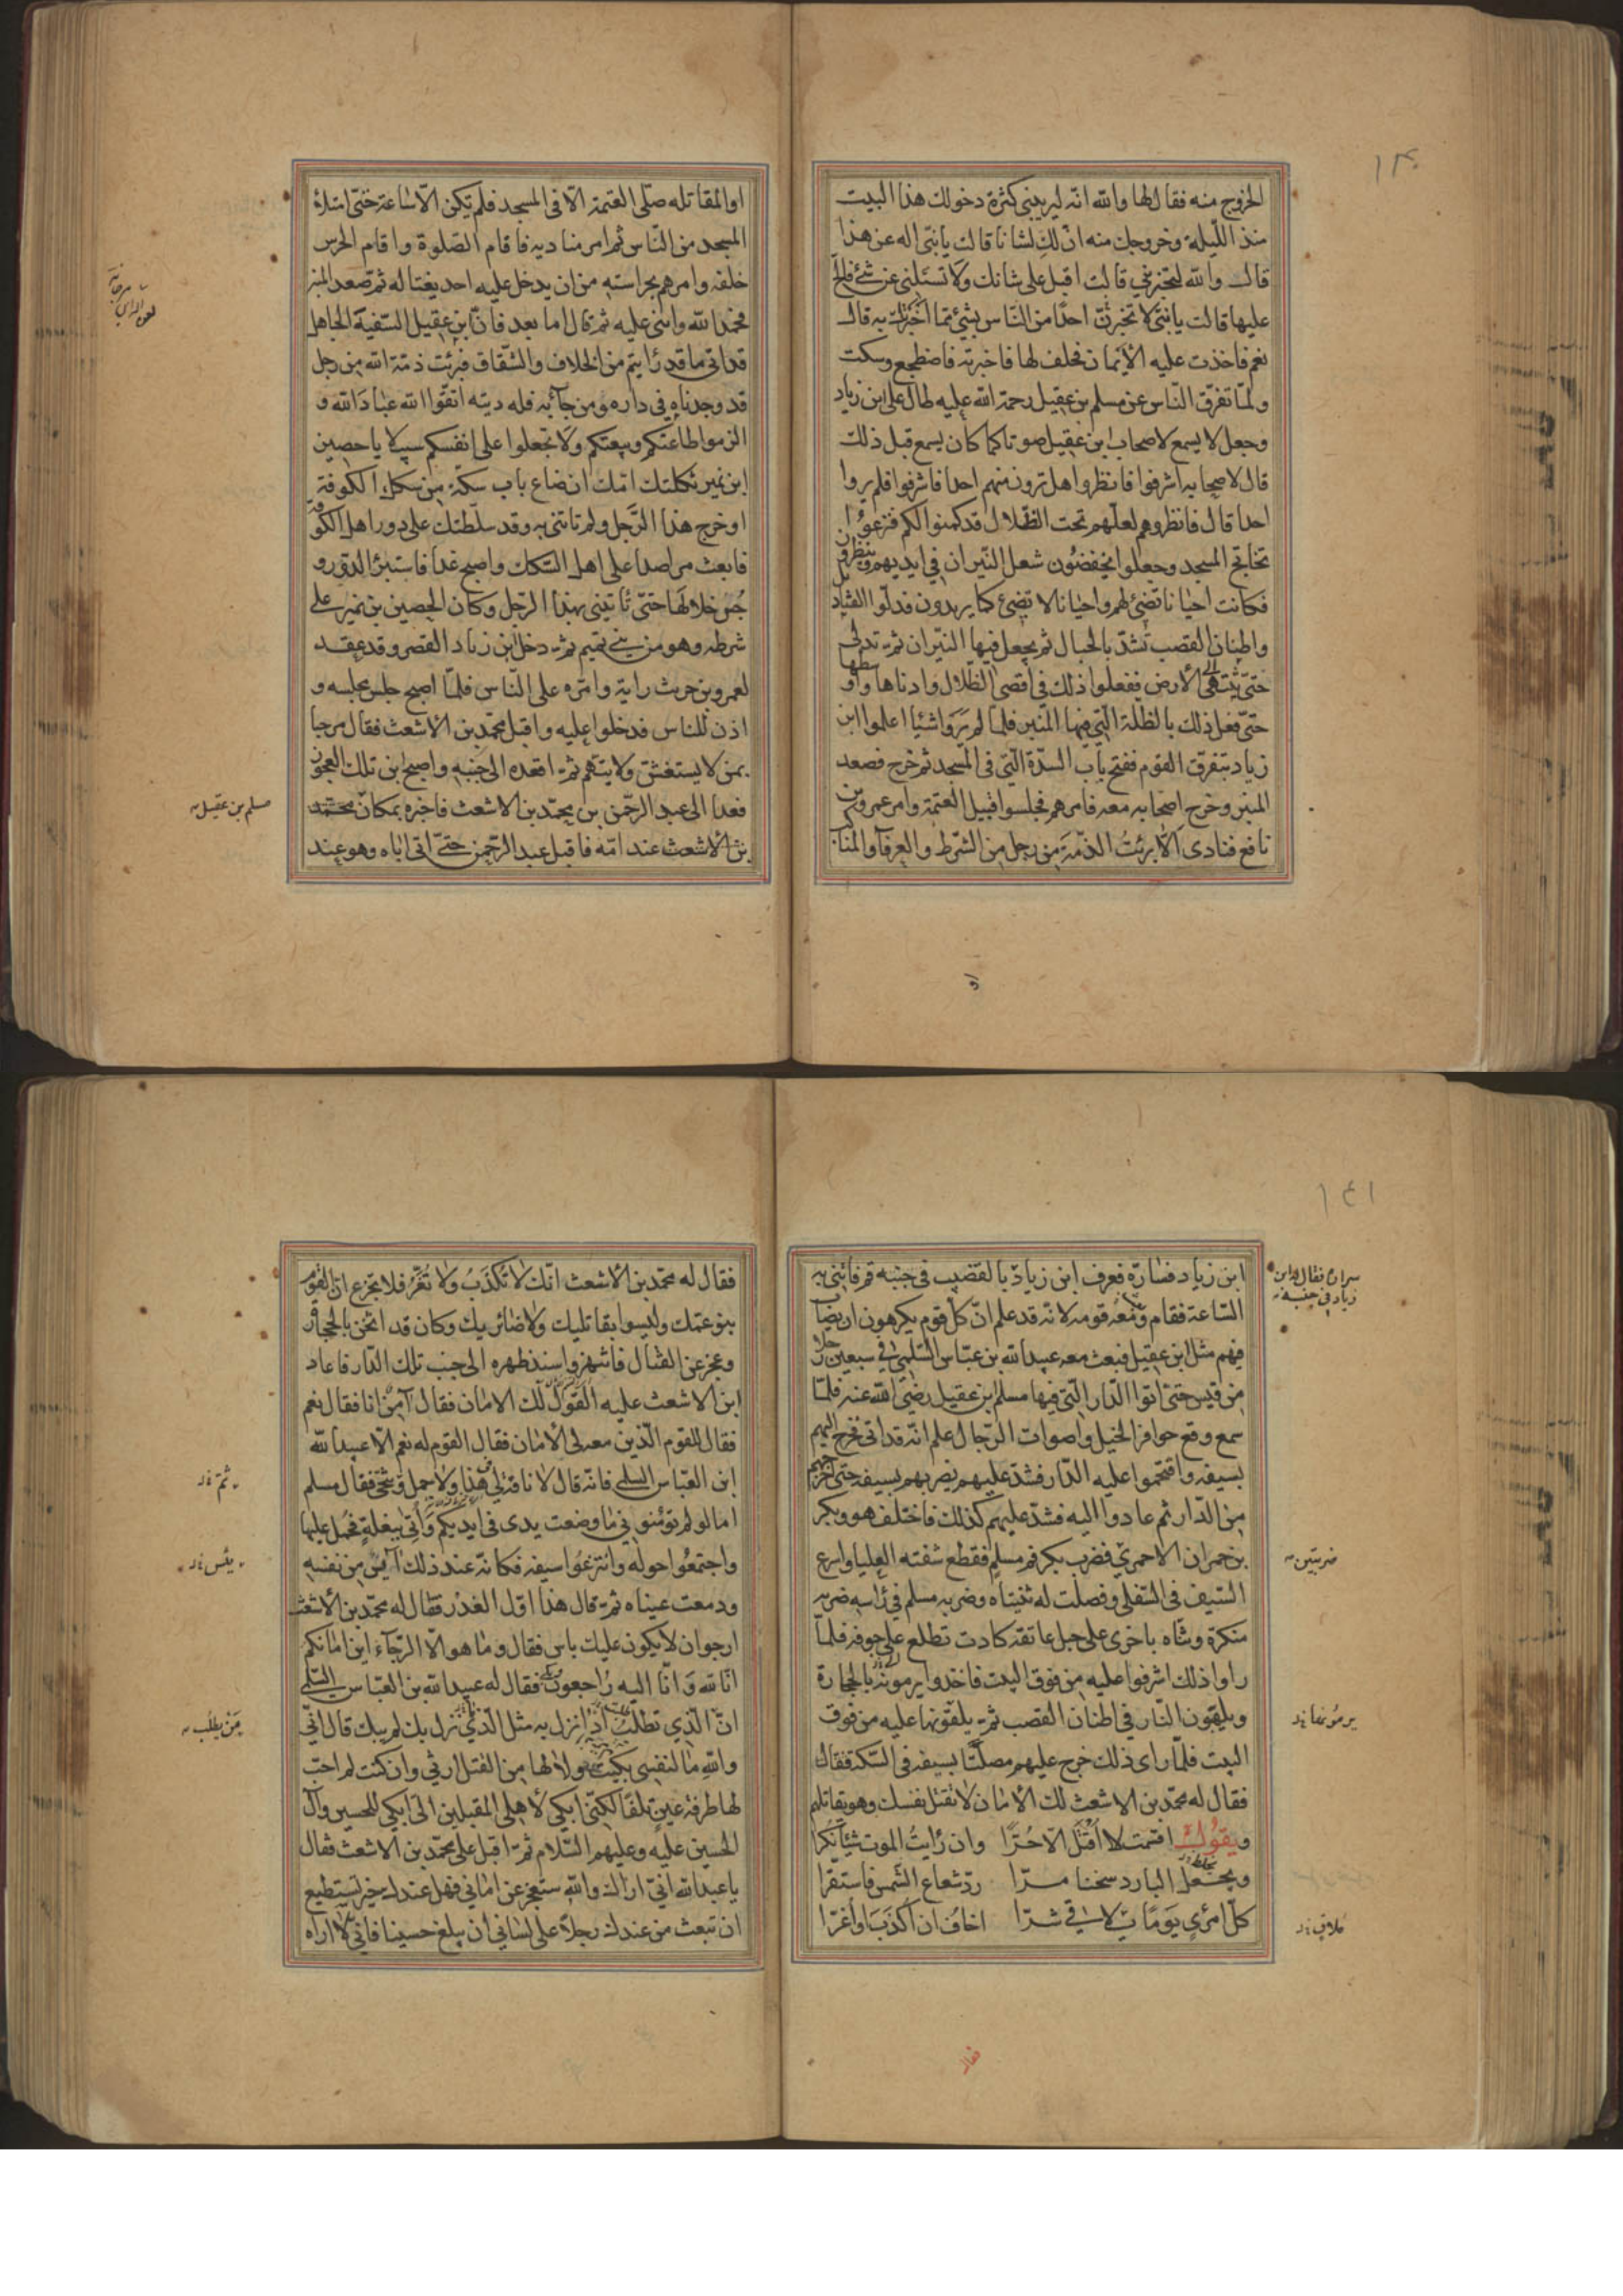 ١٣٠
الخروج منه فقال لها والله انّه ليريبنى كثرة دخولك هذا البيت
منذ اللّيلة وخروجك منه انّ لكِ لشانا قالت يا بنىّ اله عن هذا
قال والله لتخبرنى قالت اقبل على شانك ولا تسئلنى عن شئ فالحّ
عليها قالت يا بنىّ لا تخبرنّ احدًا من النّاس بشئ ممّا اخبرتك به قال
نعم فاخذت عليه الأيمان فحلف لها فاخبرته فاضطجع وسكت
ولمّا تفرّق النّاس عن مسلم بن عقيل رحمة الله عليه طال على ابن زياد
وجعل لا يسمع لاصحاب ابن عقيل صوتا كما كان يسمع قبل ذلك
قال لاصحابه اشرفوا فانظروا هل ترون منهم احدا فاشرفوا فلم يروا
احدا قال فانظروهم لعلّهم تحت الظّلال قد كمنوا لكم فنزعوا
تخاتج المسجد وجعلوا يخفضون شعل النّيران فى ايديهم وينظرون
فكانت احيانا تضئ لهم واحيانا لا تضئ كما يريدون فدلّوا القناديل
واطنان القصب تشدّ بالحبال ثم يجعل فيها النّيران ثمّ تدلى
حتّى تنتهى الى الأرض ففعلوا ذلك فى اقصى الظّلال وادناها واوسطها
حتّى فعل ذلك بالظلة الّتى فيها المنبر فلمّا لم يروا شئيا اعلموا ابن
زياد بتفرق القوم ففتح باب السدّة الّتى فى المسجد ثم خرج فصعد
المنبر وخرج اصحابه معه فامرهم فجلسوا قبيل العتمة وامر عمرو بن
نافع فنادى ألا برئت الذمّة من رجل من الشّرط والعرفآء والمناكب
او
او المقاتله صلّى العتمة الّا فى المسجد فلم يكن الّا ساعة حتّى امتلأ
المسجد من النّاس ثم امر مناديه فاقام الصّلوة واقام الحرس
خلفه وامرهم بحراسته من ان يدخل عليه احد يغتاله ثم صعد المنبر
فحمد الله واثنى عليه ثم قال اما بعد فانّ ابن عقيل السّفية الجاهل
قد اتى ما قد رايتم من الخلاف والشّقاق فبرئت ذمّة الله من رجل
قد وجدناه فى داره ومن جآء به فله ديته اتقّوا الله عباد الله و
الزموا طاعتكم وبيعتكم ولا تجعلوا على انفسكم سبيلا يا حصين
ابن نمير ثكلتك امّك ان ضاع باب سكّة من سكك الكوفة
او خرج هذا الرّجل ولم تاتنى به وقد سلّطتك على دور اهل الكوفة
فابعث مراصدا على اهل السّكك واصبح غدا فاستبرئ الدّور و
جس خلالها حتّى تاتينى بهذا الرّجل وكان الحصين بن نمير على
شرطه وهو من بنى تميم ثمّ دخل ابن زياد القصر وقد عقد
لعمرو بن حريث راية وامّره على النّاس فلمّا اصبح جلس مجلسه و
اذن للناس فدخلوا عليه واقبل محمّد بن الأشعث فقال مرحبا
بمن لا يستغشّ ولا يتّهم ثمّ اقعده الى جنبه واصبح ابن تلك العجوز
فغدا الى عبد الرّحمن بن محمّد بن الاشعث فاخبره بمكان محمّد
مسلم بن عقيل
بن الأشعث عند امّه فاقبل عبد الرّحمن حتّى اتى اباه وهو عند
١٤١
ابن زياد فسارّه فعرف ابن زياد بالقضيب فى جنبه قم فائتنى به
سراره فقال له ابن
زياد فى جنبه
السّاعة فقام ومعه قومه لانّه قد علم انّ كلّ قوم يكرهون ان يصاب
فيهم مثل ابن عقيل فبعث معه عبيد الله بن عبّاس السّلمى فى سبعين رجلا
من قيس حتى اتوا الدّار الّتى فيها مسلم بن عقيل رضى الله عنه فلمّا
سمع وقع حوافر الخيل واصوات الرّجال علم انّه قد اتى فخرج اليهم
بسيفه واقتحموا عليه الدّار فشدّ عليهم يضربهم بسيفه حتّى اخرجهم
من الدّار ثم عادوا اليه فشدّ عليهم كذلك فاختلف هو وبكر
بن حمران الاحمرى فضرب بكر فم مسلم فقطع شفته العليا واسرع
ضربتين
السّيف فى السّفلى وفصلت له ثنيتاه وضربه مسلم فى راسه ضربة
منكرة وثنّاه باخرى على حبل عاتقه كادت تطلع على جوفه فلمّا
راوا ذلك اشرفوا عليه من فوق البيت فاخذوا يرمونه بالحجارة
ويلهبون النّار فى اطنان القصب ثمّ يلقونها عليه من فوق
البيت فلمّا راى ذلك خرج عليهم مصلتًا بسيفه فى السّكة فقال
فقال له محمّد بن الاشعث لك الأمان لا تقتل نفسك وهو يقاتلهم
ويقول اقسمت لا اقتل الّا حرّا وان رايت الموت شيئا نكرا
ويجعل البارد سخنا مرّا ردّ شعاع الشّمس فاستقرّا
كلّ امرئ يوما يلاقى شرّا اخاف ان اكذب او اغرّا
ملاق
فقال
فقال له محمّد بن الاشعث انّك لا تكذب ولا تغرّ فلا تجزع انّ القوم
بنو عمّك وليسوا بقاتليك ولا ضائريك وكان قد اثخن بالحجارة
وعجز عن القتال فانبهر واسند ظهره الى جنب تلك الدّار فاعاد
ابن الاشعث عليه القول لك الامان فقال آمن انا فقال نعم
فقال للقوم الّذين معه لى الأمان فقال القوم له نعم الّا عبيد الله
ابن العبّاس السلمى فانّه قال لا ناقة لى فى هذا ولا جمل وتنحّى فقال مسلم
اما لو لم تؤمنونى ما وضعت يدى فى ايديكم وأتى ببغلة فحمل عليها
واجتمعوا حوله وانتزعوا سيفه فكانّه عند ذلك آيس من نفسه
ودمعت عيناه ثمّ قال هذا اوّل الغدر فقال له محمّد بن الأشعث
ارجو ان لا يكون عليك باس فقال وما هو الّا الرّجآء اين امانكم
انّا لله وانّا اليه راجعون فقال له عبيد الله بن العبّاس السّلمى
انّ الّذى تطلب اذا نزل به مثل الّذى نزل بك لم يبك قال انّى
من يطلب
والله ما لنفسى بكيت ولا لها من القتل ارثى وان كنت لم احبّ
لها طرفة عين تلفا لكنّى ابكى لأهلى المقبلين الىّ ابكى للحسين وآل
الحسين عليه وعليهم السّلام ثمّ اقبل على محمّد بن الاشعث فقال
يا عبد الله انّى اراك والله ستعجز عن امانى فهل عندك خير تستطيع
ان تبعث من عندك رجلا على لسانى ان يبلغ حسينا فانّى لا اراه